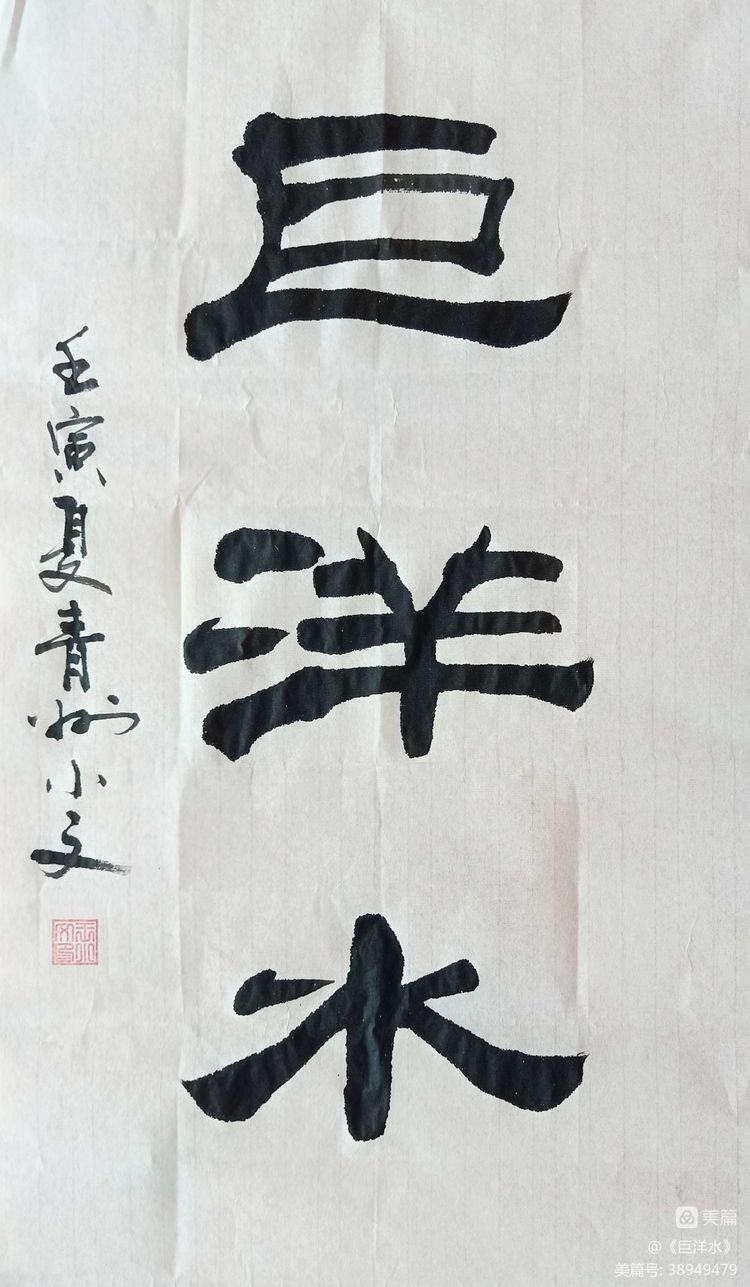 巨洋水
壬寅夏青州小文
美篇
@《巨洋水》
美篇号: 38949479